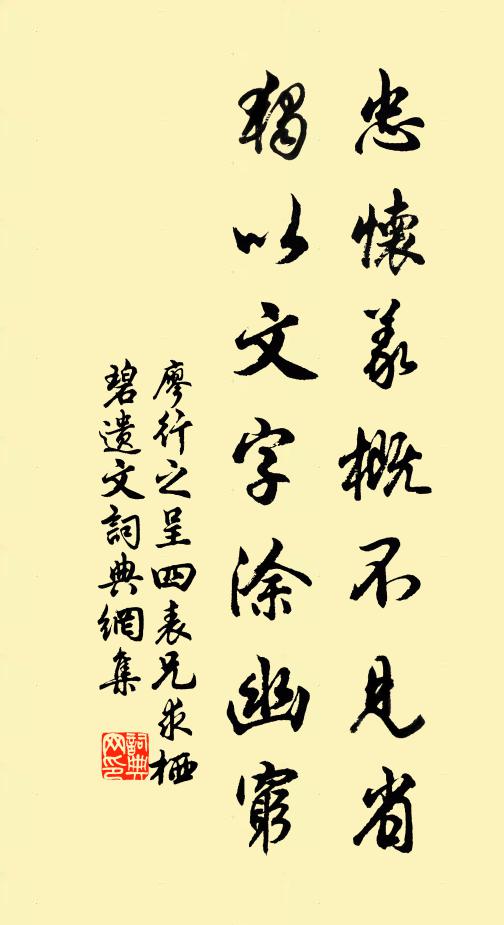 忠懷義概不見省
獨以文字涂幽窮
廖行之呈四表兄求栖
碧遺文詞典網集
詞典網印